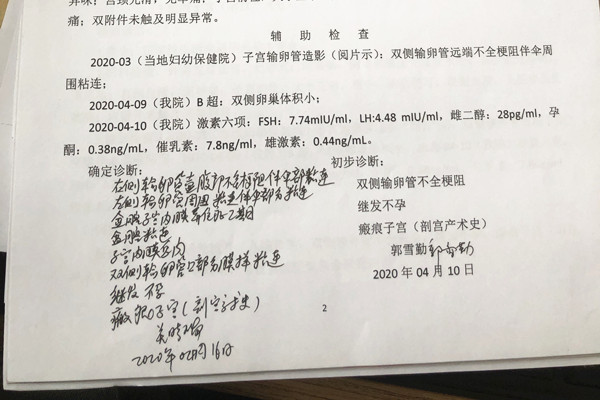 痛；双附件未触及明显异常。
辅 助 检 查
2020-03（当地妇幼保健院）子宫输卵管造影（阅片示）：双侧输卵管远端不全梗阻伴伞周
围粘连；
2020-04-09（我院）B 超：双侧卵巢体积小；
2020-04-10（我院）激素六项：FSH：7.74mIU/ml，LH:4.48 mIU/ml，雌二醇：28pg/ml，孕
酮：0.38ng/mL，催乳素：7.8ng/ml，雄激素：0.44ng/mL。
确定诊断：
左侧输卵管壶腹部不全梗阻伴伞部粘连
右侧输卵管周围粘连伴伞部粘连
盆腔子宫内膜异位症
盆腔粘连
子宫内膜息肉
双侧输卵管 部 膜样粘连
继发不孕
瘢痕子宫（剖宫产术史）
2020年 月16日
初步诊断：
双侧输卵管不全梗阻
继发不孕
瘢痕子宫（剖宫产术史）
郭雪勤 郭雪勤
2020 年 04 月 10 日
2